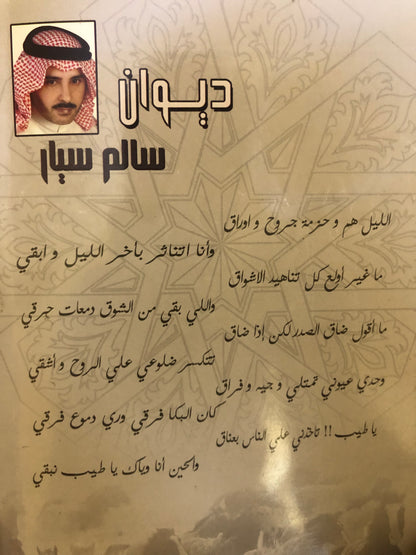 ديوان
سالم سيار
الليل هم و حزمة جروح و اوراق
وأنا اتناثر بأخر الليل و ابقي
ما غير أولع كل تناهيد الاشواق
واللي بقي من الشوق دمعات حبرقي
ما أقول ضاق الصدر لكن إذا ضاق
تتكسر ضلوعي علي الروح و أشقي
وحدي عيوني تمتلي و جيه و فراق
كان البكا فرقي وري دموع فرقي
يا طيب !! تاخذني علي الناس بعناق
والحين أنا وياك يا طيب نبقي